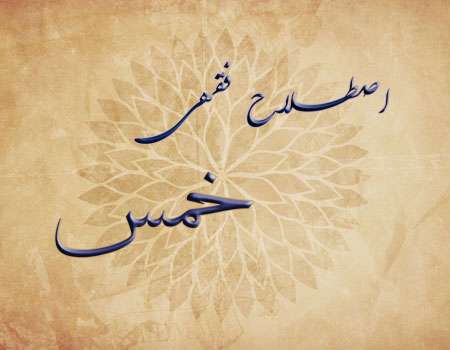 اصطلاح فقهی
خمس